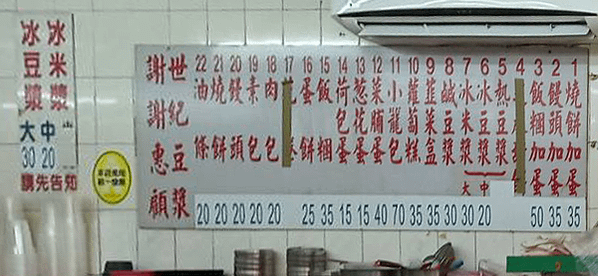 冰米漿
冰豆漿
大 中
30 20
請先告知
世紀豆漿
謝謝惠顧
1 燒餅加蛋 35
2 饅頭加蛋 35
3 飯糰加蛋 50
4
5 熱豆漿
6 冰豆漿 中 20
7 冰米漿 大 30
8 鹹豆漿 30
9 韮菜盒 35
10 蘿蔔糕 35
11 小籠包 70
12 菜脯蛋 40
13 葱花蛋 15
14 荷包蛋 15
15 飯糰 35
16 蛋餅 25
17
18 肉包 20
19 素包 20
20 饅頭 20
21 燒餅 20
22 油條 20